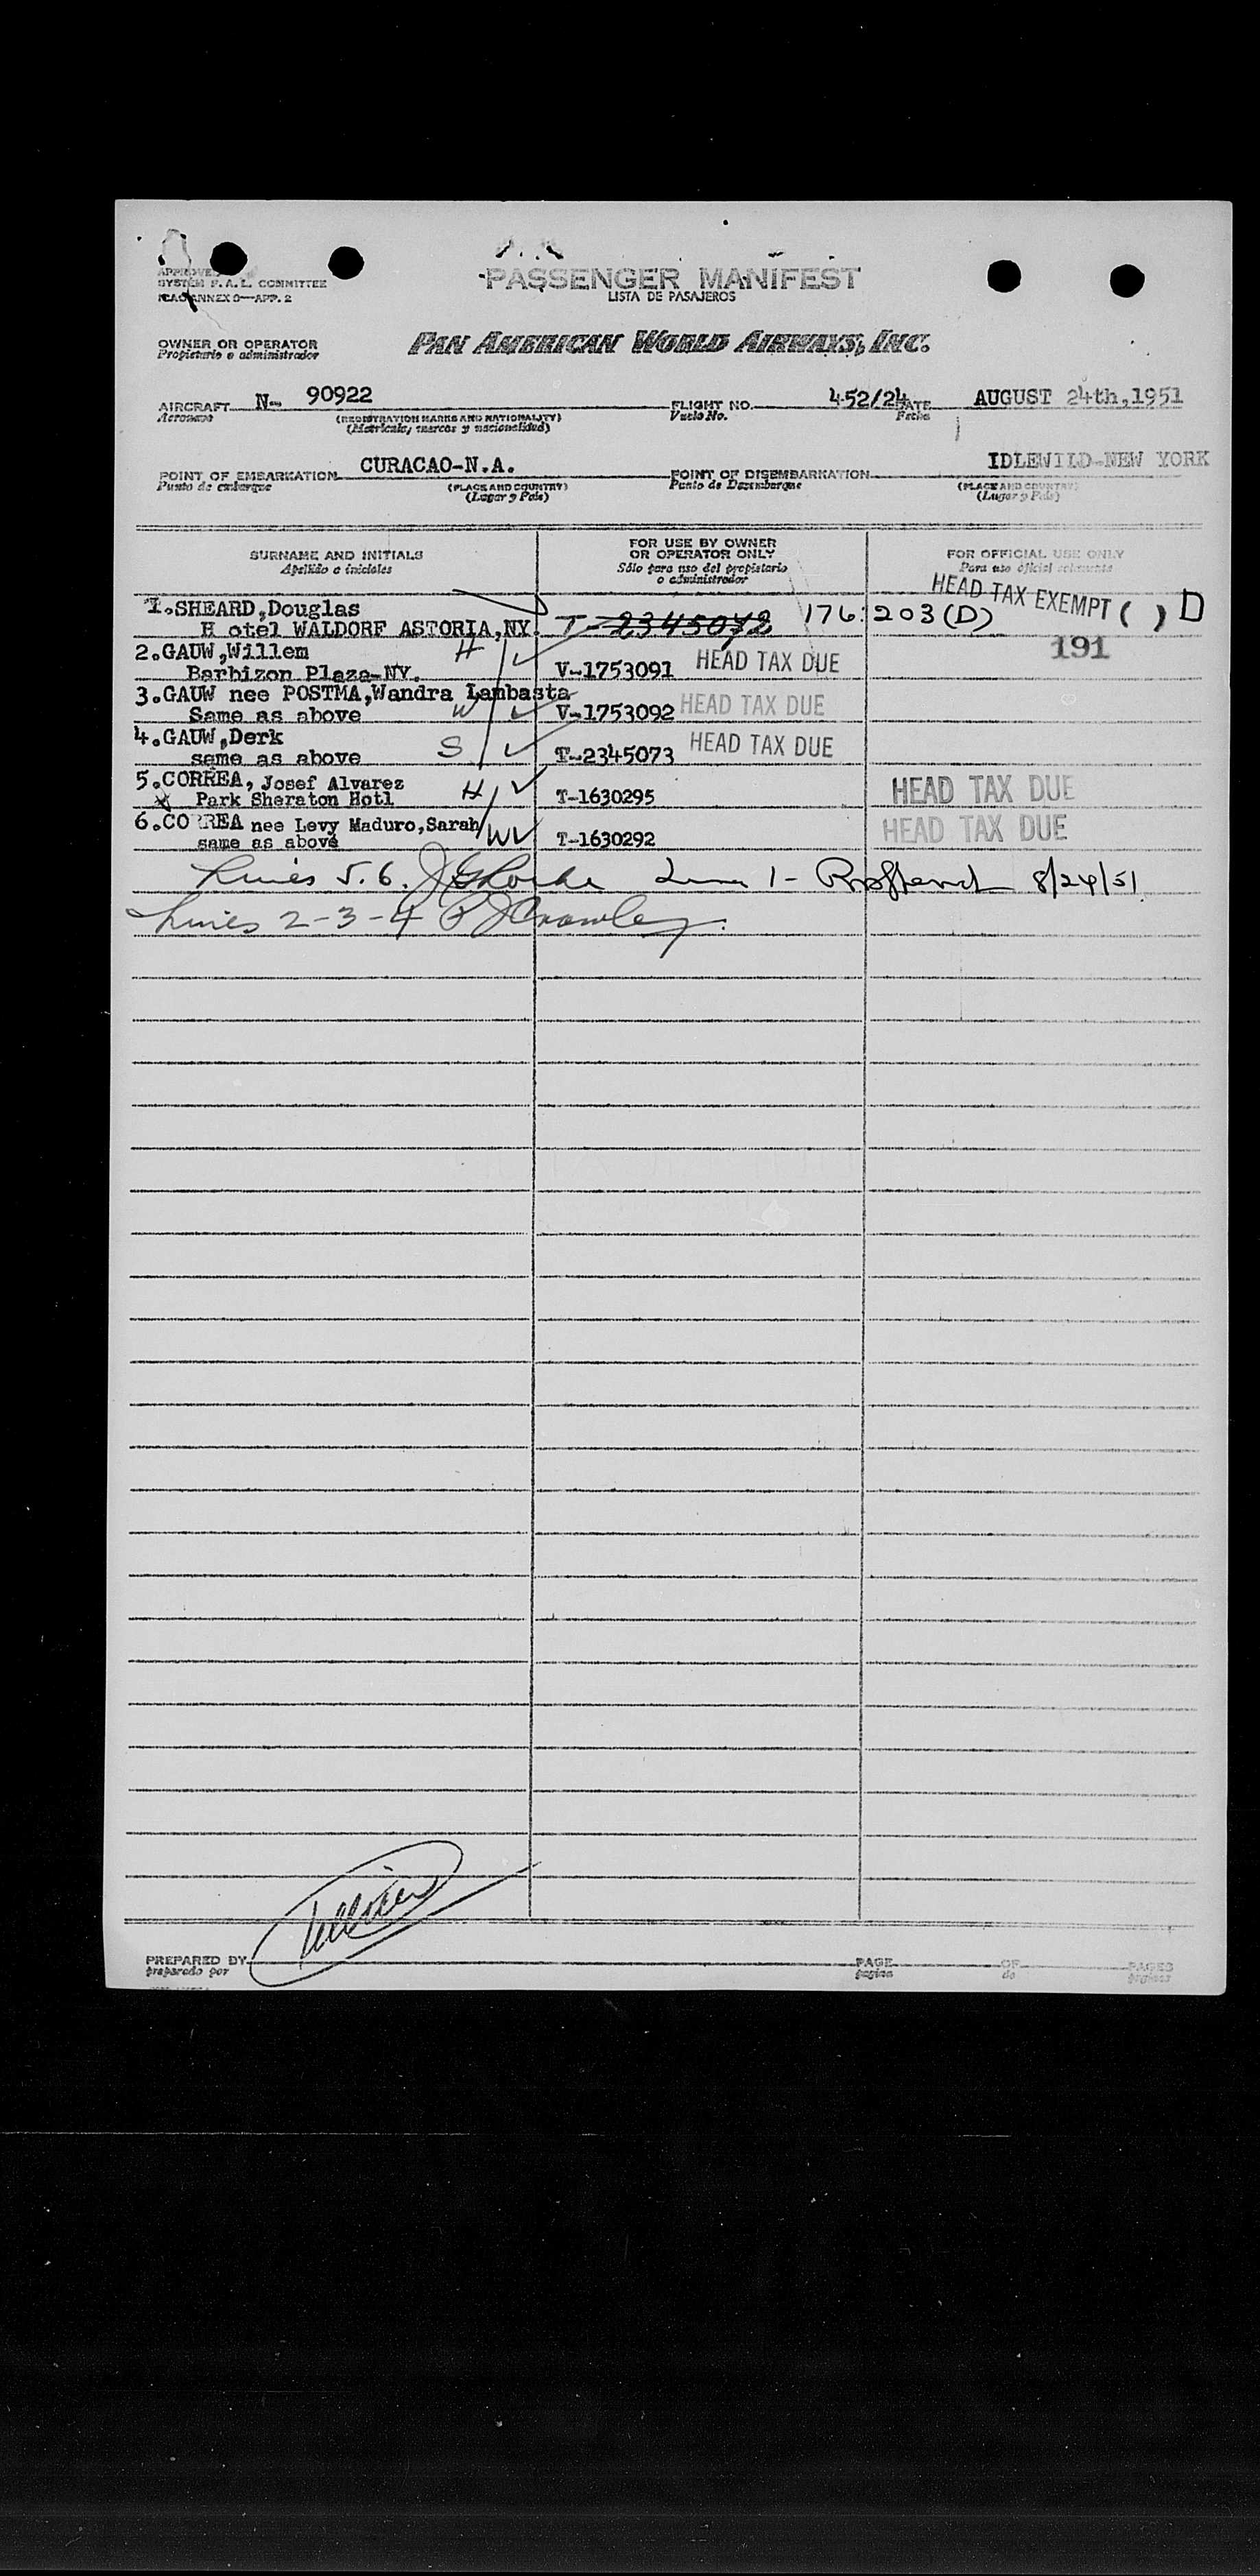 APPROVED
SYSTEM F.A.L. COMMITTEE
ICAO ANNEX 9—APP. 2
PASSENGER MANIFEST
LISTA DE PASAJEROS
OWNER OR OPERATOR
Propietario o administrador
PAN AMERICAN WORLD AIRWAYS, INC.
AIRCRAFT N- 90922 FLIGHT NO. 452/24 DATE AUGUST 24th,1951
Aeronave (REGISTRATION MARKS AND NATIONALITY) Vuelo No. Fecha
(Matricula, marcas y nacionalidad)
POINT OF EMBARKATION CURACAO-N.A. POINT OF DISEMBARKATION IDLEWILD-NEW YORK
Punto de embarque (PLACE AND COUNTRY) Punto de Desembarque (PLACE AND COUNTRY)
(Lugar y Pais) (Lugar y Pais)
SURNAME AND INITIALS
Apellido e iniciales
FOR USE BY OWNER
OR OPERATOR ONLY
Sólo para uso del propietario
o administrador
FOR OFFICIAL USE ONLY
Para uso oficial solamente
HEAD TAX EXEMPT ( ) D
1.SHEARD,Douglas
H otel WALDORF ASTORIA,NY. T-2345072 176:203(D)
191
2.GAUW,Willem H
Barbizon Plaza-NY. V-1753091 HEAD TAX DUE
3.GAUW nee POSTMA,Wandra Lambasta
Same as above W V-1753092 HEAD TAX DUE
4.GAUW,Derk
same as above S T-2345073 HEAD TAX DUE
5.CORREA, Josef Alvarez H
Park Sheraton Hotl T-1630295 HEAD TAX DUE
6.CORREA nee Levy Maduro,Sarah
same as above W T-1630292 HEAD TAX DUE
Lines 5.6. Line 1- 8/24/51
Lines 2-3-4 P J Crowley
PREPARED BY PAGE OF PAGES
preparado por pagina de páginas